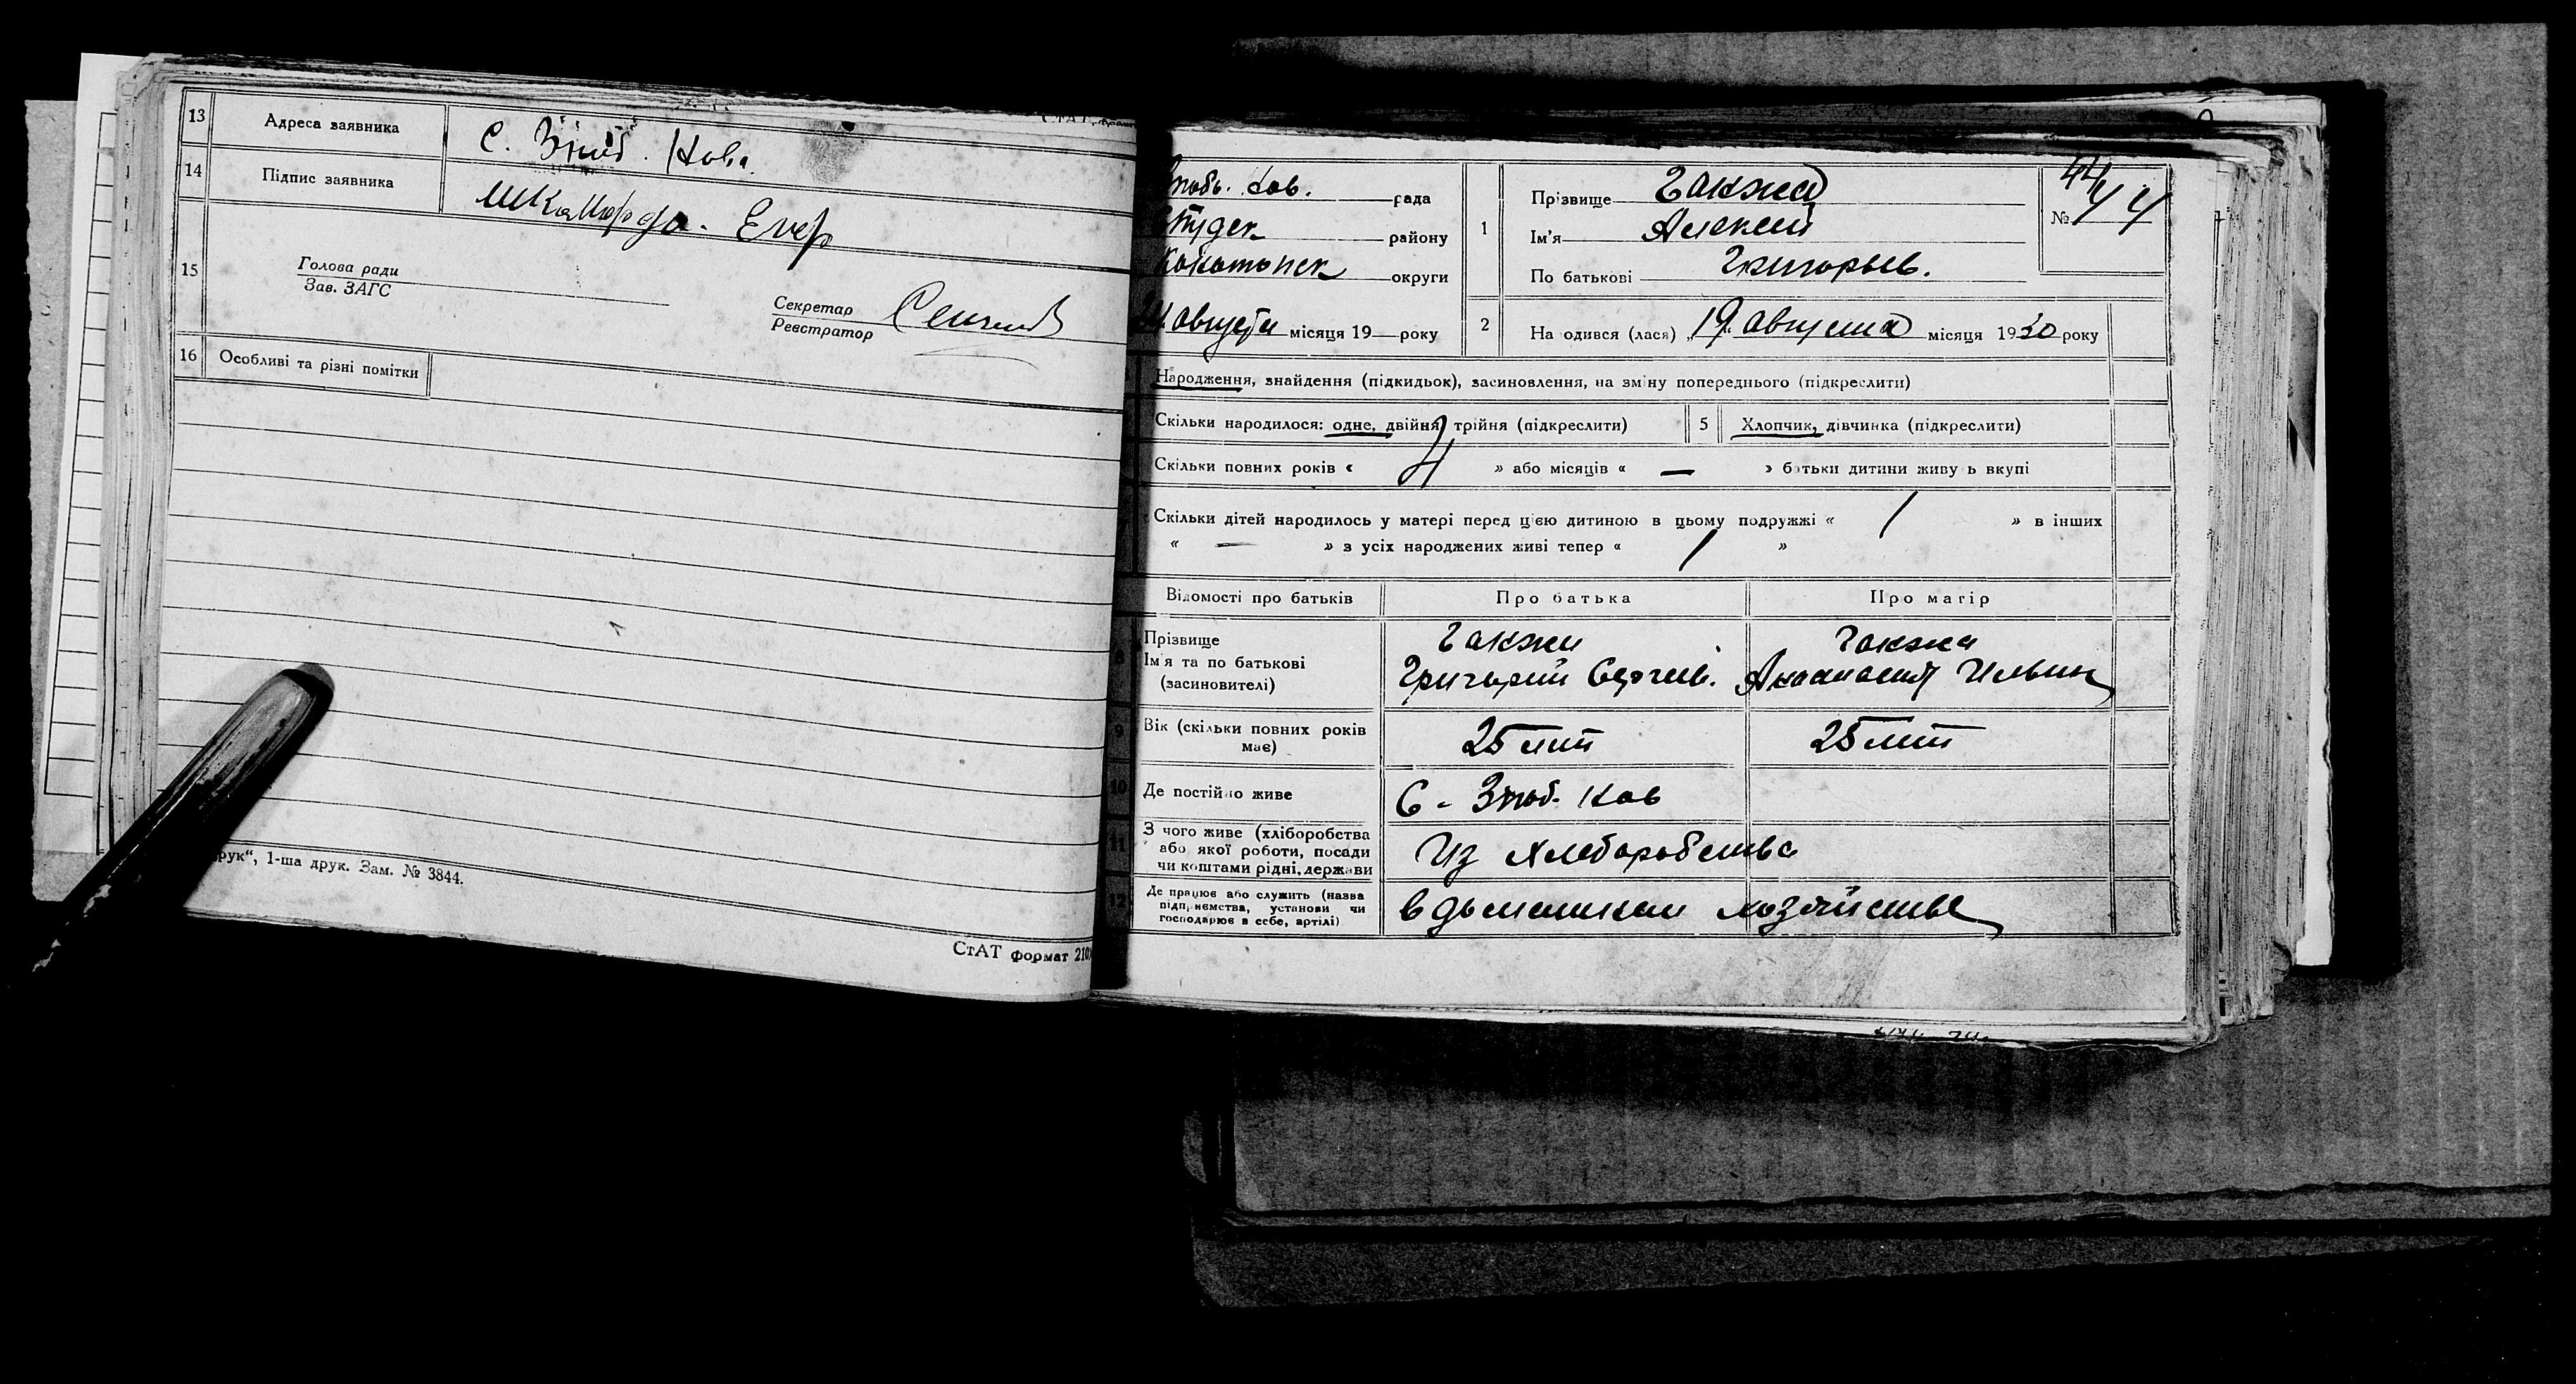 13 Адреса заявника С. Зноб. Нов.
14 Підпис заявника Шкамарда. Егер
15 Голова ради
Зав. ЗАГС
Секретар
Реєстратор
16 Особливі та різні помітки
рук“, 1-ша друк. Зам. № 3844.
СтАТ формат 210
Зноб. Нов. рада
района району
Конотопск округи
августа місяця 19 року
1 Прізвище Гакжа
Ім'я Алексей
По батькові Григорьев.
№ 44
2 На одився (лася) „19 августа місяця 1930 року
Народження, знайдення (підкидьок), засиновлення, на зміну попереднього (підкреслити)
Скільки народилося: одне, двійня, трійня (підкреслити) 5 Хлопчик, дівчинка (підкреслити)
Скільки повних років « 4 » або місяців « — » батьки дитини живуть вкупі
Скільки дітей народилось у матері перед цією дитиною в цьому подружжі « 1 » в інших
« — » з усіх народжених живі тепер « 1 »
Відомості про батьків Про батька Про матір
Прізвище Гакжа Гакжа
Ім'я та по батькові Григорий Сергеев. Анастасия Ильин
(засновителі)
9 Вік (скільки повних років
має) 25 лет 25 лет
10 Де постійно живе С. Зноб. Нов
11 З чого живе (хліборобства
або якої роботи, посади
чи коштами рідні, держави Из хлеборобства
12 Де працює або служить (назва
підприємства, установи чи
господарює в себе, артілі) в домашнем хозяйстве